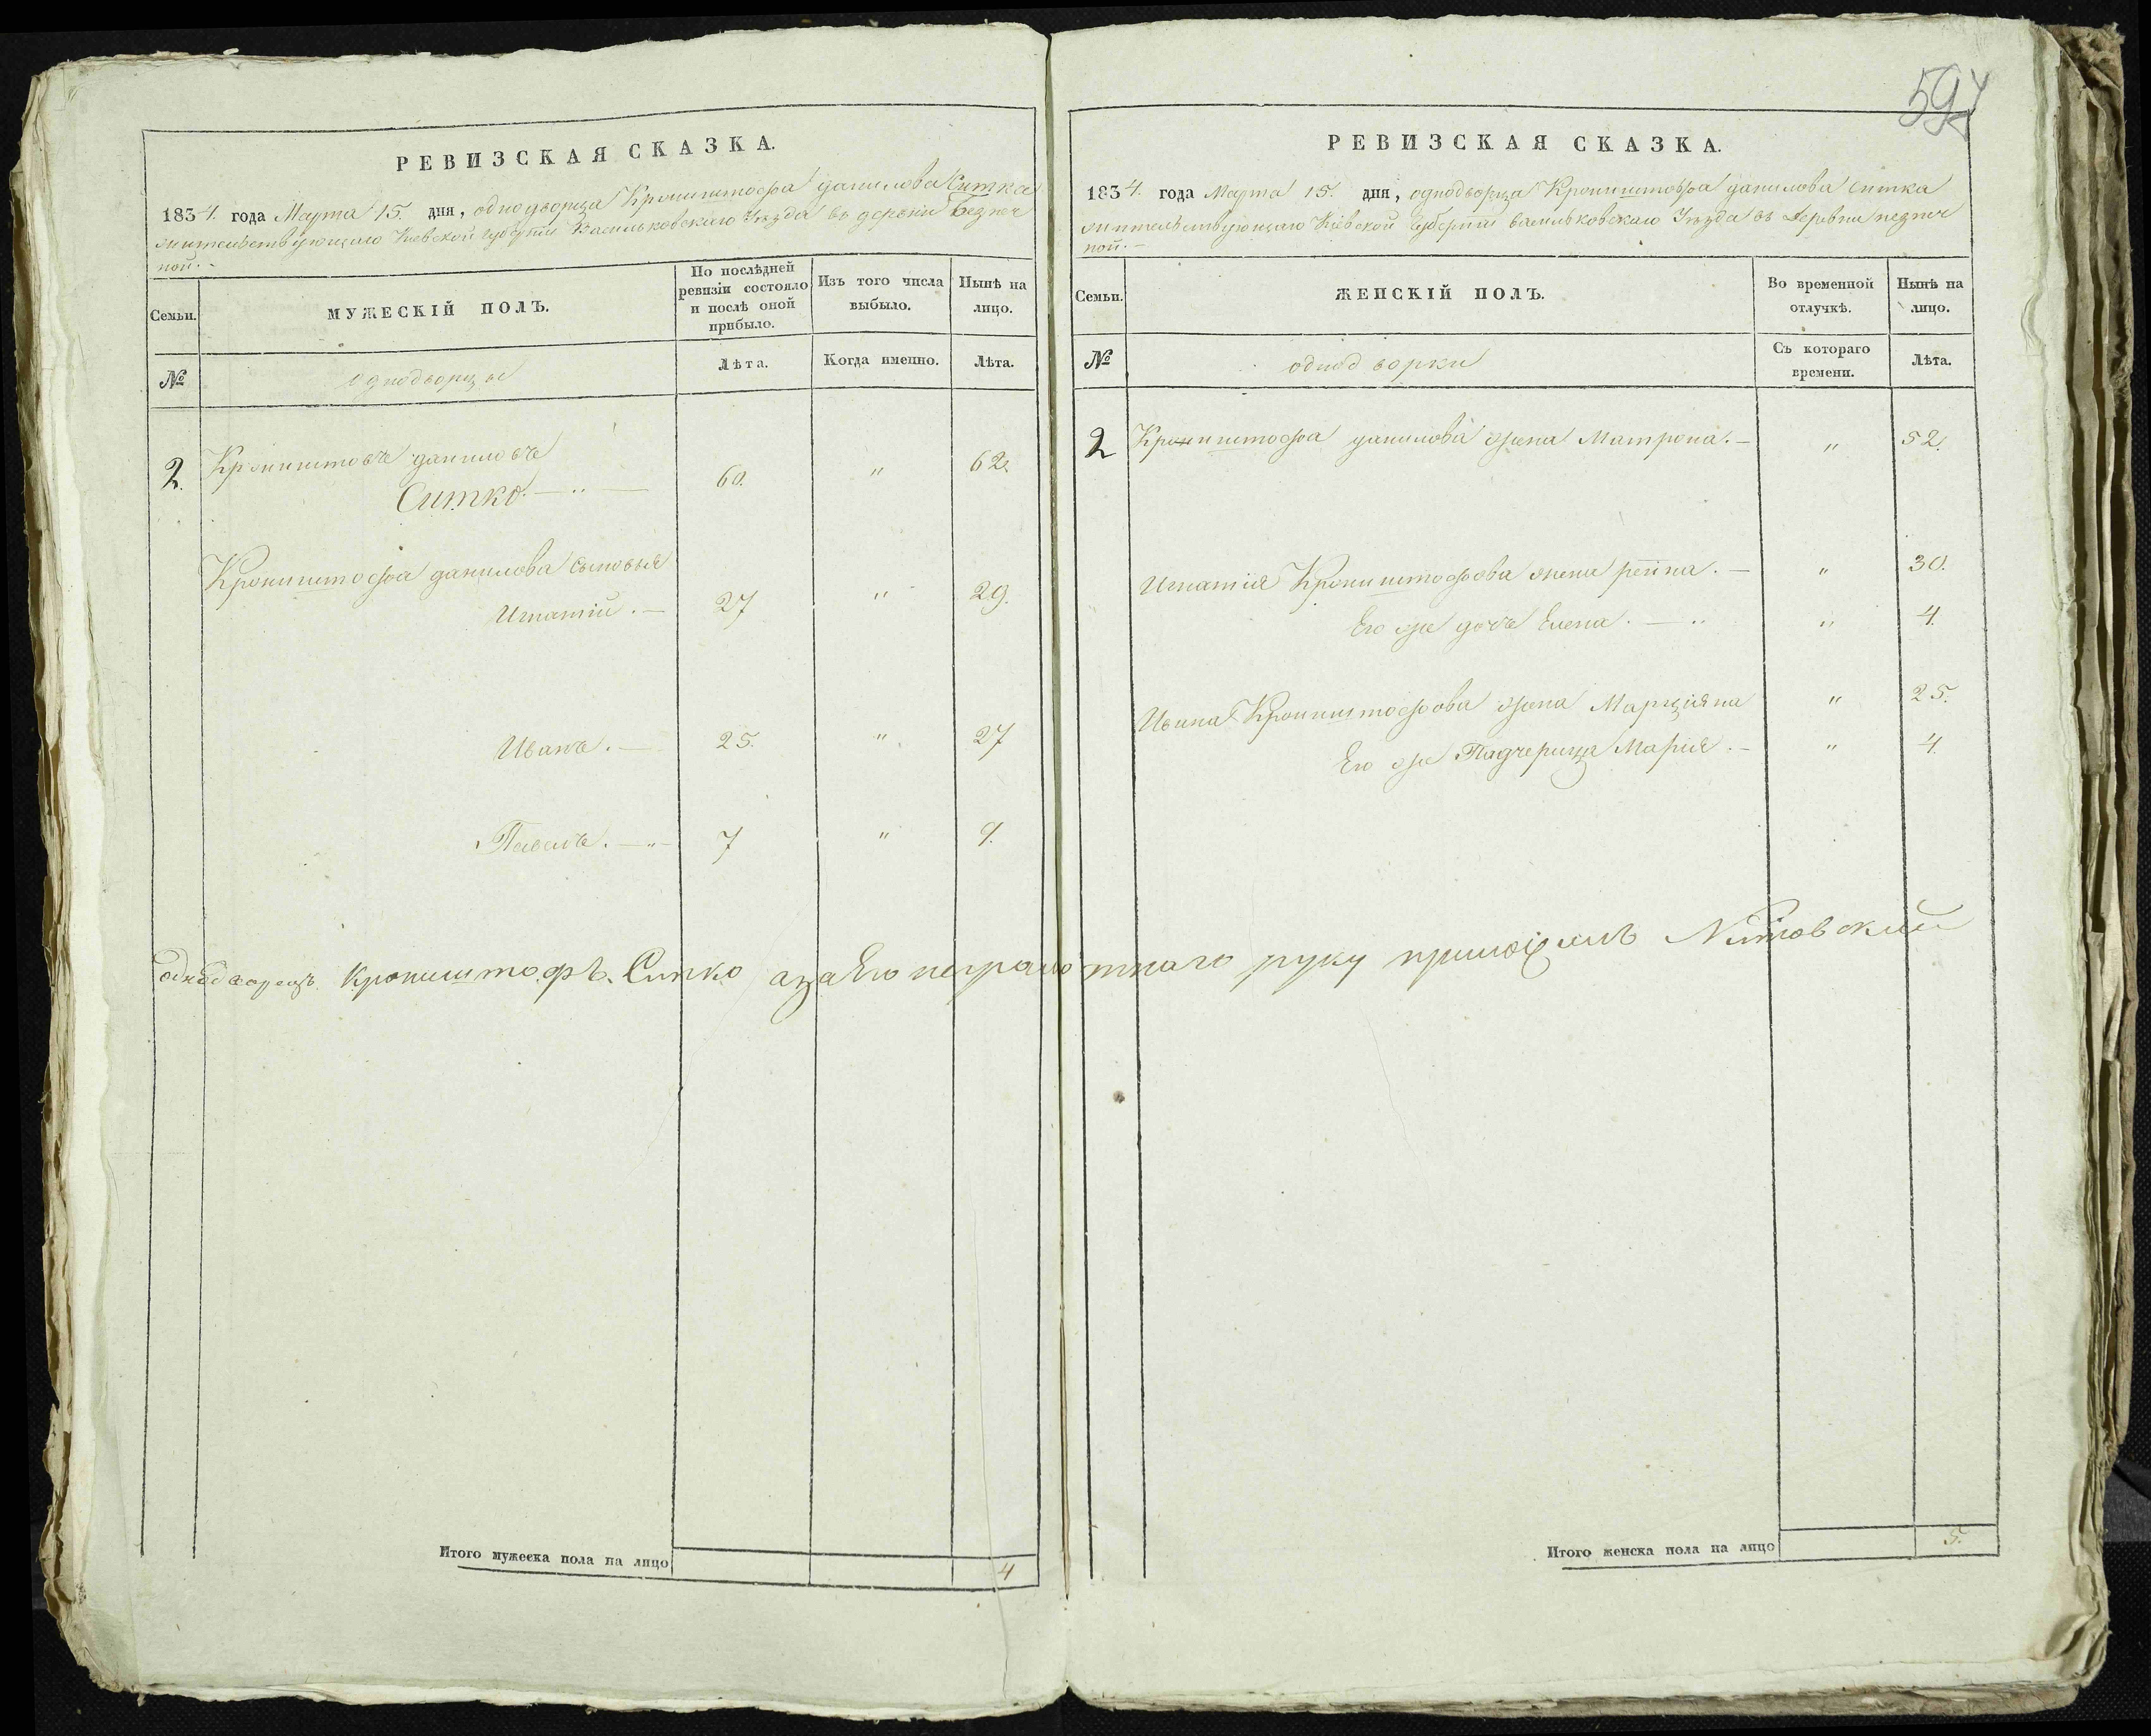 РЕВИЗСКАЯ СКАЗКА.
1834. года Марта 15. дня, однодворца Кронишտофа данилова Ситка
жительствующаго Киевской губернии Васильковскаго уѣзда въ деревни Безпеч
ной.-
Семьи.
МУЖЕСКІЙ ПОЛЪ.
По послѣдней ревизіи состояло и послѣ оной прибыло.
Изъ того числа выбыло.
Нынѣ на лицо.
№
однодворцы
Лѣта.
Когда именно.
Лѣта.
2. Кроништовъ даниловъ
Ситко. 60. " 62.
Кроништофа данилова сыновья
Игнатій. 27 " 29.
Иванъ. 25. " 27
Павелъ. 7 " 9.
однодворецъ Кроништофъ Ситко азаЕго неграмотнаго руку приложилъ
Итого мужеска пола на лицо 4
594
РЕВИЗСКАЯ СКАЗКА.
1834. года Марта 15. дня, однодворца Кроништофа данилова Ситка
жительствующаго Кіевской Губерніи васильковскаго Уѣзда въ деревни безпеч
ной.-
Семьи.
ЖЕНСКІЙ ПОЛЪ.
Во временной отлучкѣ.
Нынѣ на лицо.
№
однодворки
Съ котораго времени.
Лѣта.
2 Кроништофа данилова жена Матрона. " 52.
Игнатія Кроништофова жена " 30.
Его же дочь Елена. " 4.
Ивана Кроништофова жена Марціяна " 25.
Его же Падчерица Марія. " 4.
Итого женска пола на лицо 5.